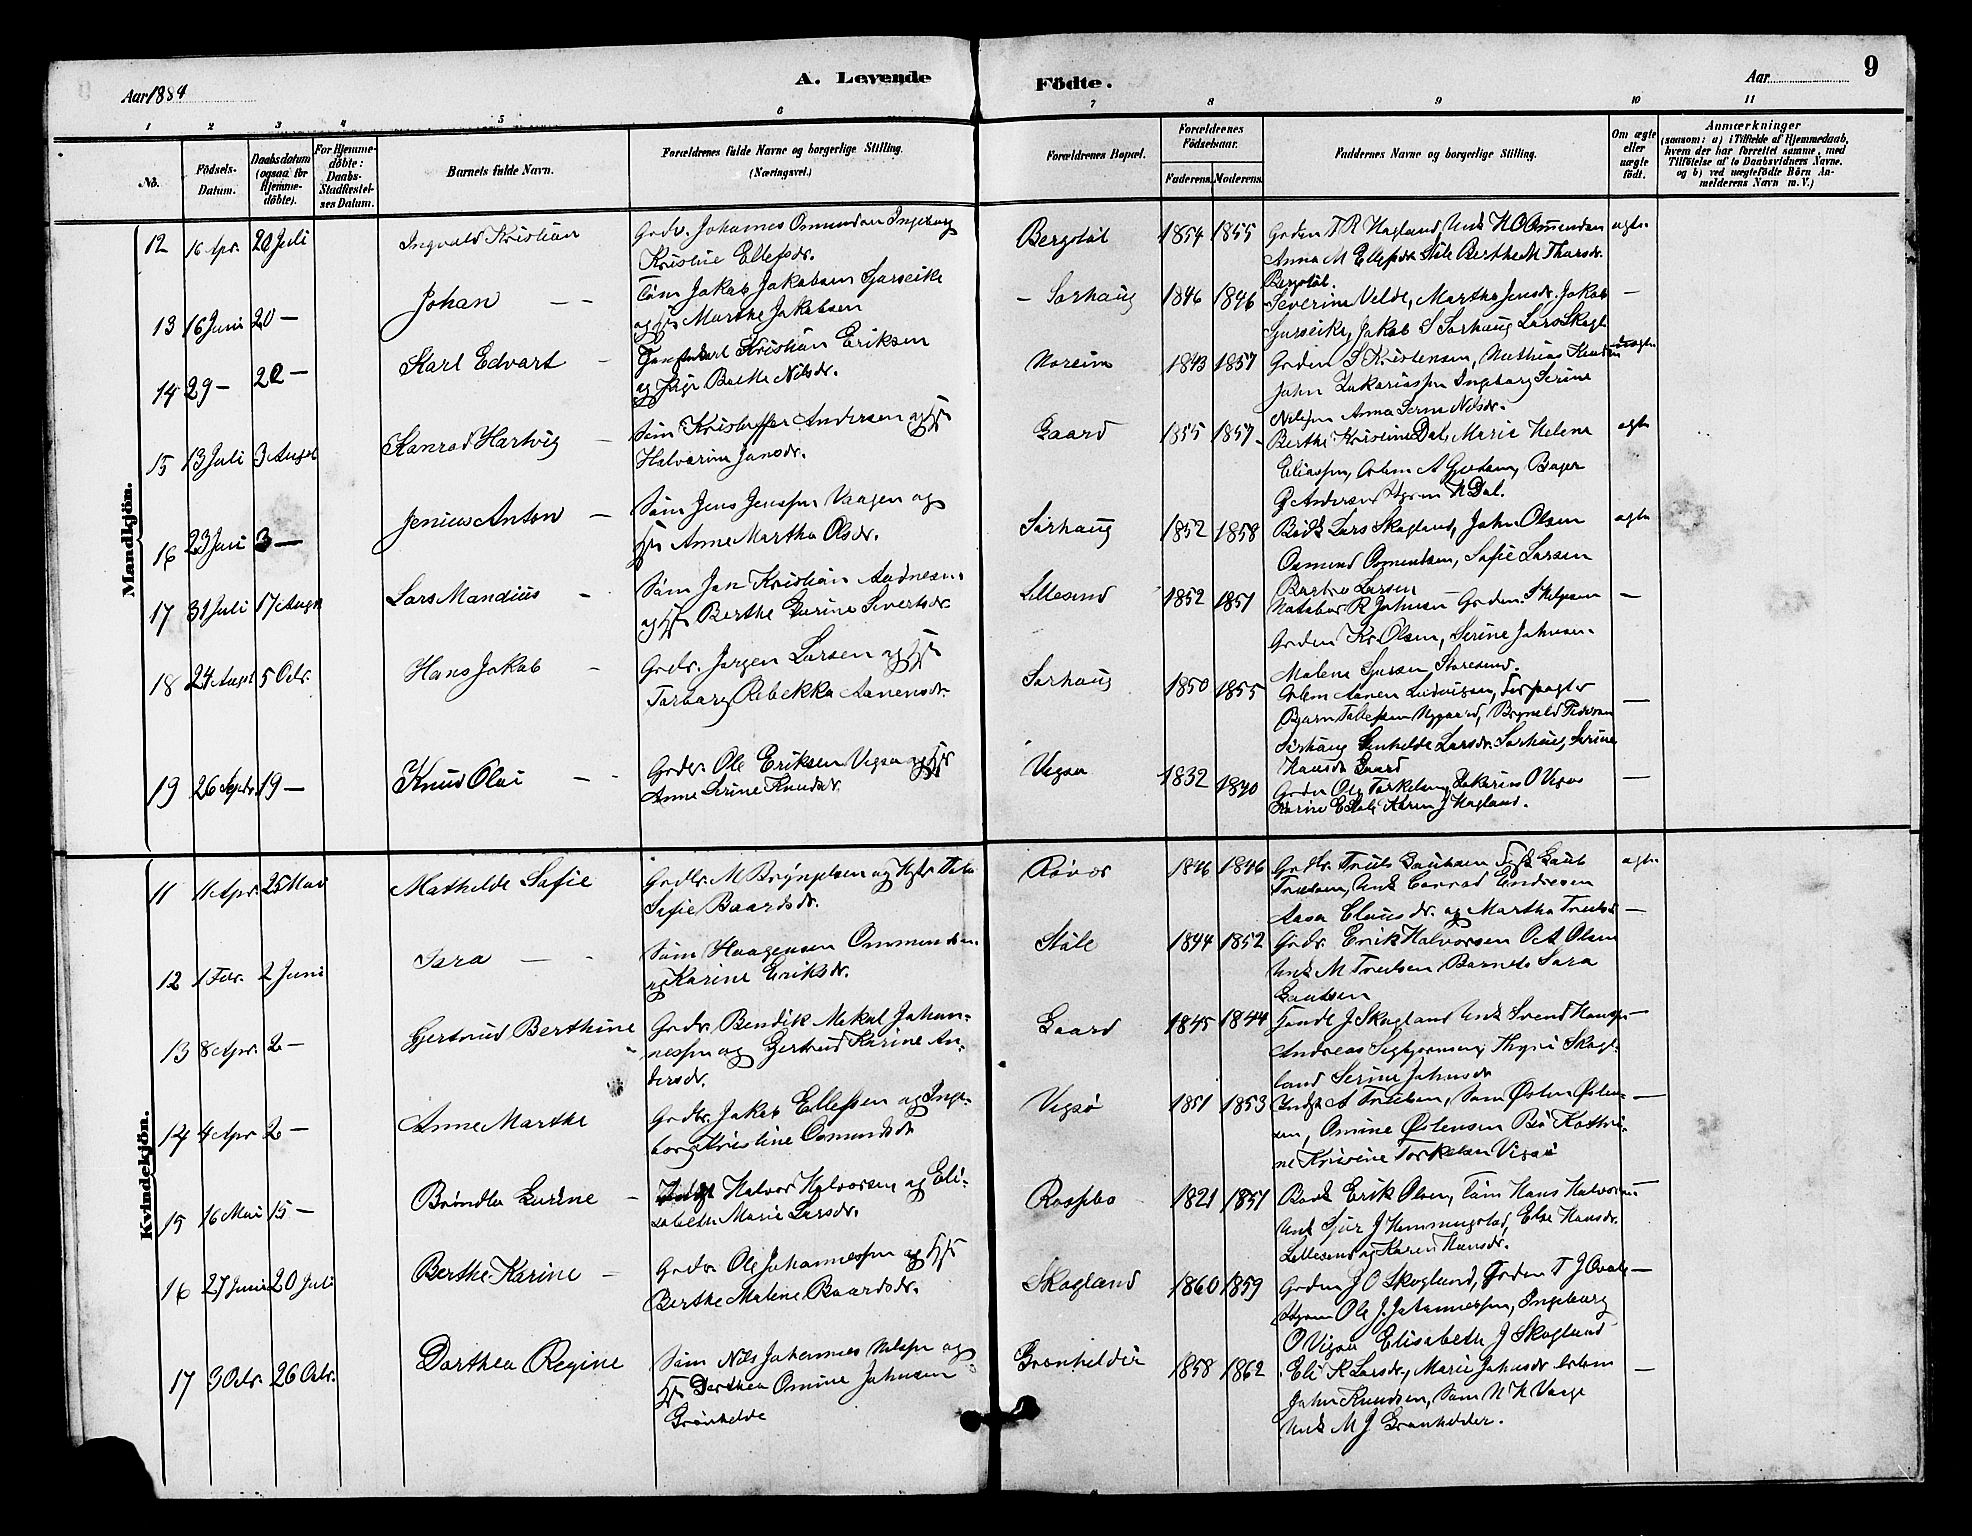 Aar 1884
A. Levende
Födte.
Aar
9
1 2 3 4 5 6 7 8 9 10 11
No.
Födsels-
Datum.
Daabsdatum
(ogsaa for
Hjemme-
döbte).
For Hjemme-
döbte:
Daabs-
Stadfæstel-
ses Datum.
Barnets fulde Navn.
Forældrenes fulde Navne og borgerlige Stilling.
(Næringsvei.)
Forældrenes Bopæl.
Forældrenes
Födselsaar.
Faderens. Moderens.
Faddernes Navne og borgerlige Stilling.
Om ægte
eller
uægte
födt.
Anmærkninger
(saasom: a) i Tilfælde af Hjemmedaab,
hvem der har forrettet samme, med
Tilföielse af to Daabsvidners Navne.
og b) ved uægtefödte Börn An-
melderens Navn m. V.)
Mandkjön.
12 16 Apr. 20 Juli
Ingvald Kristian
Grdr. Johannes Osmundsen Ingeborg
Kristine Ellefsdr.
Bergstöl
1854 1855
Grdm T R Hagland, Unk H O Osmundsen
Anna M Ellefsdr Støle Berthe M Thorsdr.
Bergstöl.
ægte
13 16 Juni 20 —
Johan — —
Töm Jakob Jakobsen
og H Marthe Jakobsen
— Sørhaug
1846 1846
Severine Velde, Marthe Jensdr. Jakob
Jakob S Sørhaug Lars Skogl
—
14 29 — 20 —
Karl Edvart —
Kristian Eriksen
og Pige Balle Nilsdr.
Noreim
1843 1857
Grdm S Kristensen, Mathias Knudsen
John Zakariassen Ingeborg Serine
Nilssen Anna Serine Nilsdr.
uægte
15 13 Juli 3 Augst
Konrad Hartvig —
Søm Kristoffer Andersen og H
Halvarine Jonsdr.
Gaard
1855 1857
Berthe Kristine Dal, Marie Helena
Eliassen, A Bager
G Andersen N Dal.
ægte
16 23 Juni 3 —
Jenius Anton —
Søm Jens Jenssen Vaagen og
H Anne Martha Olsdr.
Sørhaug
1852 1858
Bødk Lars Skogland, John Olsen
Osmund Osmundsen, Sofie Larsen
Larsen
ægte
17 31 Juli 17 Augs
Lars Mandius —
Søm Jon Kristian Aadnesen
og H Berthe Gurine Sivertsdr.
Lillesund
1852 1851
R Johnsen Grdm.
Grdm Kr Olsen, Serine Johnsen.
Malene Storesund.
—
18 24 Augst 5 Octr.
Hans Jakob —
Grdr. Jørgen Larsen og H
Torborg Rebekka Aanensdr.
Sørhaug
1850 1855
Aanen Ludvigsen, Forpagter
Bjørn Tollefsen Nygaard,
Sørhaug Gunhilde Larsdr. Sørhaug, Serine
Hansdr Gaard
—
19 26 Septr. 19 —
Knud Olai — —
Grdr. Ole Eriksen Vigsø og H
Anne Serine Knudsdr.
Vigsø
1832 1840
Grdm Ole Torkelsen, Zakarias O Vigsø
Karine E Støle Karen J Hagland.
—
Kvindekjön.
11 11 Apr. 25 Mai
Mathilde Sofie
Grdbr. M Brynjelsen og
Sofie Baardsdr.
Røvær
1846 1846
Grdbr. Truls Gautsen Fisk Gaut
Trulsen, Unk Conrad Andresen
Aasa Clausdr. og Martha Trulsdr
ægte
12 1 Febr. 2 Juni
Sara — —
Søm Haagensen Ommundsen
og Karine Eriksdr.
Støle
1844 1852
Grdr. Erik Halvorsen O A Olsen
Unk M Trulsen Barnets Sara
Gautsen
—
13 8 Apr. 2 —
Gjertrud Berthine —
Grdr. Bendik Mekal Johan-
nessen og Gjertrud Karine An-
dersdr.
Gaard
1845 1844
J Skogland Unk Svend Hanssen
Andreas Sigbjørnsen, Thyri Skog-
land Serine Johnsdr
—
14 4 Apr. 2 —
Anne Marthe
Grdbr. Jakob Ellefsen og Inge-
borg Kristine Osmundsdr
Vigsø
1851 1853
A Trulsen, Søm Østen Østen-
sen, Omine Østensen Bø Kathri-
ne Kristine Torkelsen Vigsø
—
15 16 Mai 15 —
Brøndla Gurine —
Halvor Halvorsen og Eli-
sabeth Marie Larsdr.
Rossebø
1821 1851
Erik Olsen, Töm Hans Halvorsen
Unk Sjur J Hemmingstad, Else Hansdr.
Lillesund og Karen Hansdr.
—
16 27 Juni 20 Juli
Berthe Karine —
Grdr. Ole Johannessen og H
Berthe Malene Baardsdr.
Skogland
1860 1859
Grdm J O Skogland, Grdm T J Kvale
Styrm Ole J. Johannessen, Ingeborg
O Vigsø Elisabeth J Skogland
—
17 3 Octr. 26 Octr.
Dorthea Regine
Søm Nils Johannes Nilssen og
H Dorthea Omine Johnsen
Grønhelde
Grønhelder
1858 1862
Eli K Larsdr., Marie Johnsdr
John Knudsen, Søm N N Vaage
Unk M J Grønhelder.
—